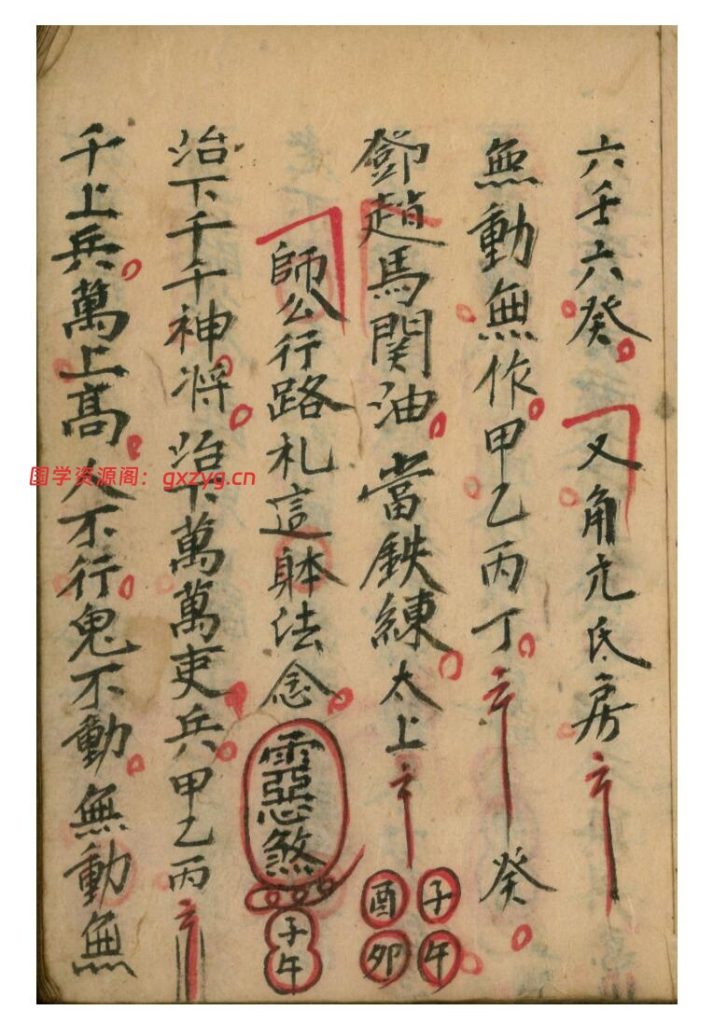 六壬六癸 又角亢氐房
無動無作甲乙丙丁 癸
鄧趙馬関油當鉄練太上 子午酉卯
師公行路札這躰法念 惡煞 子午
治下千千神将治下萬萬吏兵甲乙丙
千上兵萬上高人不行鬼不動無動無
国学资源阁：gxzyg.cn